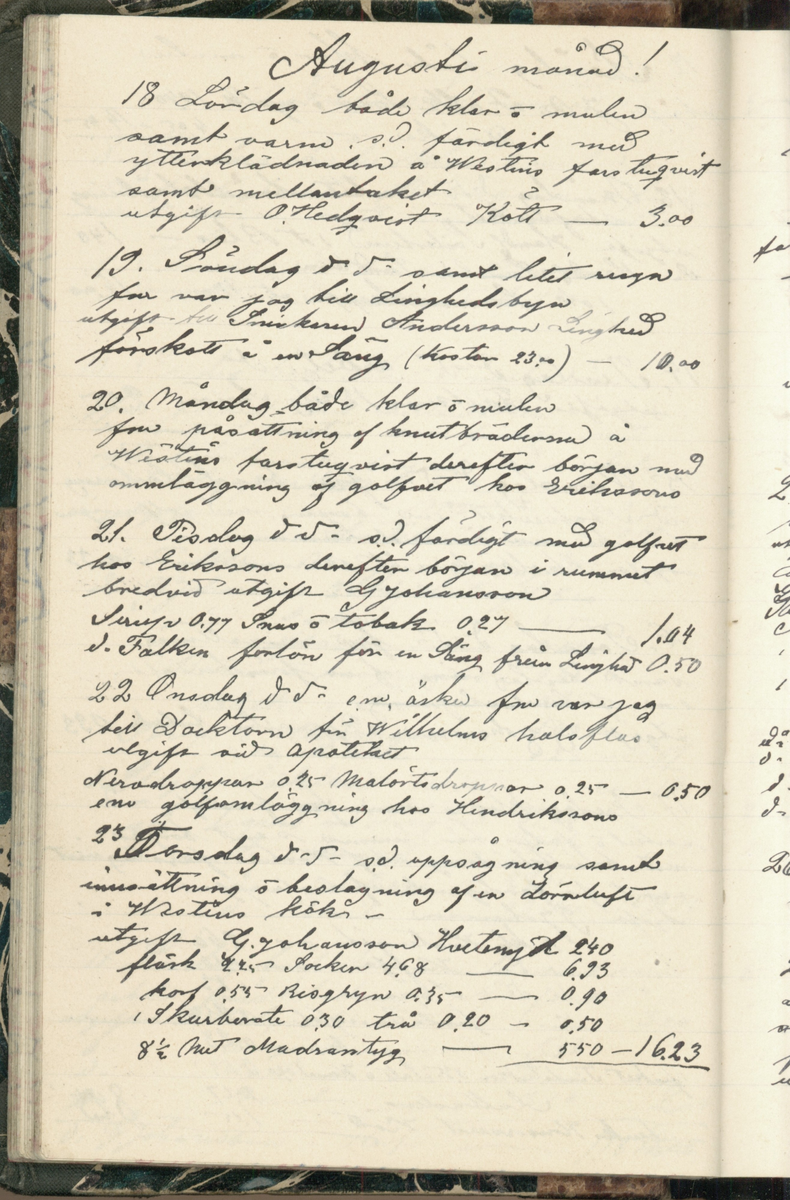 Augusti månad!
18 Lördag både klar o mulen
samt varm. s.d. färdigt med
ytterklädnaden å Westins farstuqvist
samt mellantaket
utgift O. Hedqvist Kött — 3.00
19. Söndag d d- samt litet regn
for var jag till Linghedsbyn
utgift till Snickaren Andersson Linghed
förskott å en Säng (Kostar 23.00) — 10.00
20. Måndag både klar o mulen
fm påsättning af knutbräderna å
Westins farstuqvist derefter början med
ommläggning af golfvet hos Erikssons
21. Tisdag d d- s.d. färdigt med golfvet
hos Erikssons derefter början i rummet
bredvid utgift G Johansson
Sirup 0.77 Snus o tobak 0.27 — 1.04
d. Falken forlön för en Säng från Linghed 0.50
22 Onsdag d d- em, åska fm var jag
till Docktorn för Wilhelms halsfluss
utgift vid apoteket
Nervdroppar 0.25 Malörtsdroppar 0.25 — 0.50
em golfomläggning hos Hendrikssons
23 Torsdag d-d- s.d. uppsågning samt
innsättning o beslagning af en Dörrluft
i Westins kök -
utgift G. Johansson Hvetemjöl 240
fläsk 2.25 Socken 4.68 — 6.93
korf 0.55 Risgryn 0.35 — 0.90
1 Skurborste 0.30 trå 0.20 — 0.50
8 ½ Met Madrasstyg — 550 — 16.23